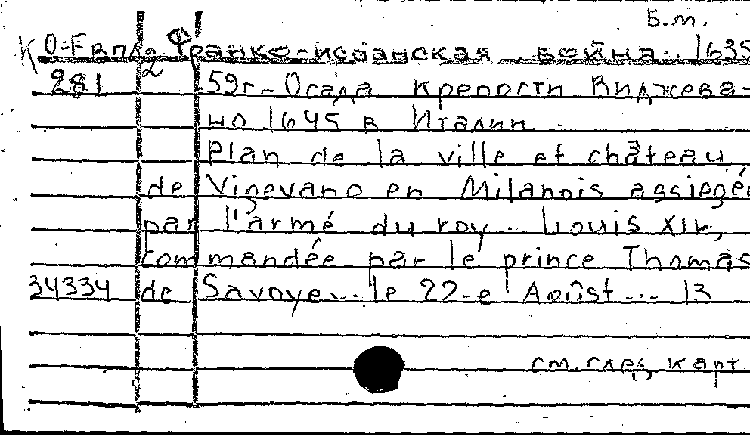 Б.м.
К О-Епл Франко-испанская война 1635
281 2 59г-Осада крепости Виджева-
но 1645 в Италии
Plan de la ville et château
de Vigevano en Milanois assiegé
par l'armé du roy Louis XIV,
commandée par le prince Thomas
34334 de Savoye... le 22-e Août... 13
см. след карт